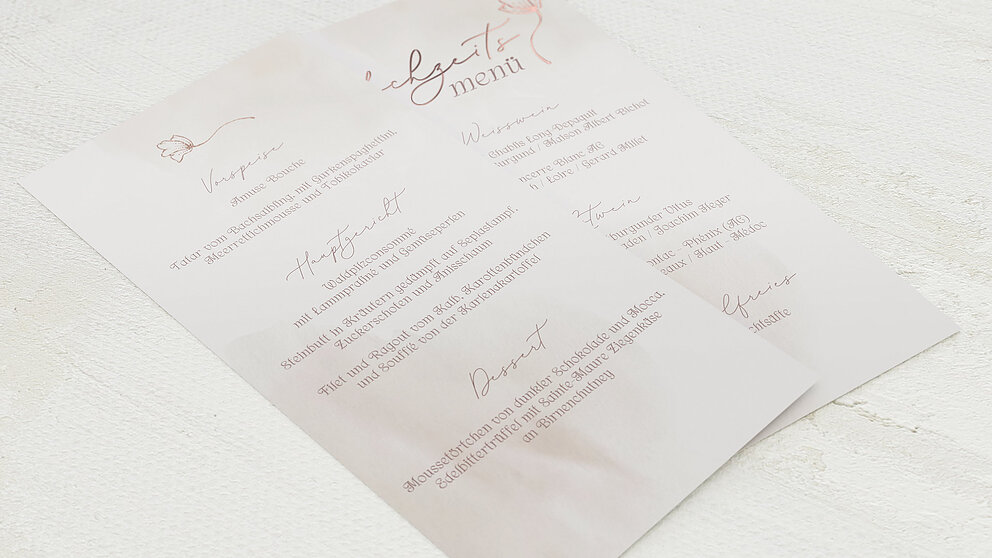 Vorspeise
Amuse Bouche
Tatar vom Bachsaibling, mit Gurkenspaghettini,
Meerrettichmousse und Tobikokaviar
Hauptgericht
Waldpilzconsommé
mit Lammpraliné und Gemüseperlen
Steinbutt in Kräutern gedämpft auf Sepiastampf,
Zuckerschoten und Anisschaum
Filet und Ragout vom Kalb, Karottenfündchen
und Soufflé von der Kartenakartoffel
Dessert
Moussetörtchen von dunkler Schokolade und Mocca,
Edelbittertrüffel mit Sainte-Maure Ziegenkäse
an Birnenchutney
chzeits
menü
Weisswein
Chablis Long Depaquit
urgund / Maison Albert Bichot
ncerre Blanc AC
h / Loire / Gerard Millet
twein
burgunder Vitus
den / Joachim Heger
ontac - Phénix (AC)
eaux / Haut - Médoc
lfreies
chtsäfte